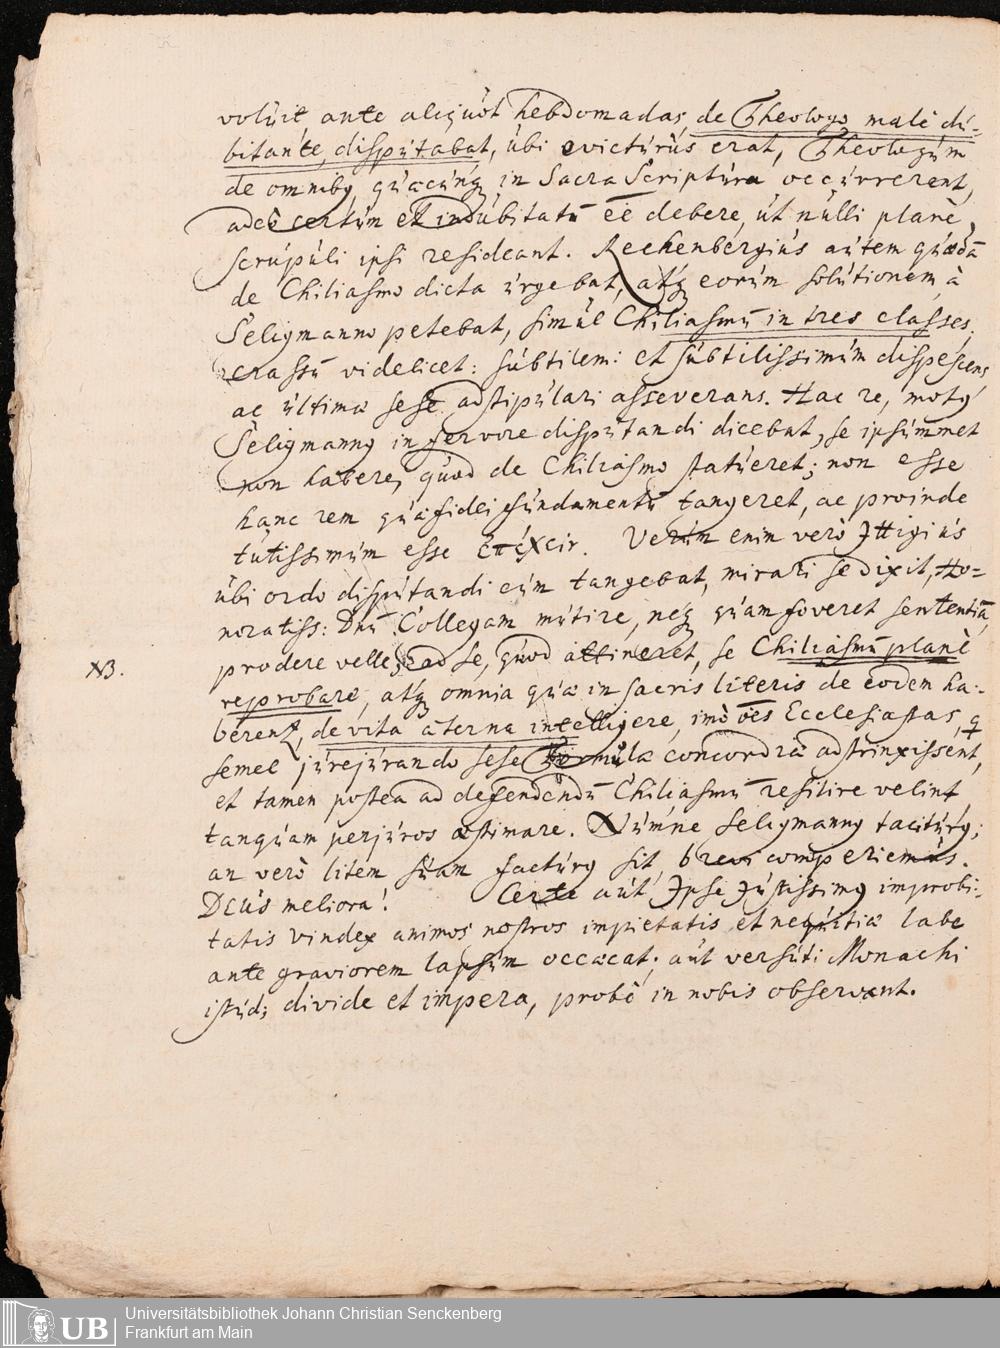 voluit ante aliquot hebdomadas de Theologo malè du-
bitante, disputabat, ubi evicturus erat, Theologum
de omnibꝰ quæcunqꝫ in Sacra Scriptura occurrerent,
adeò certum et indubitatū ēē debere, ut nulli planè
scrupuli ipsi resideant. Rechenbergius autem quædā
de Chiliasmo dicta urgebat, atqꝫ eorum solutionem à
Seligmanno petebat, simul Chiliasmū in tres classes,
crassū videlicet: subtilem: et subtilissimum dispescens
ac ultimæ sese adstipulari asseverans. Hac re, motꝰ
Seligmannꝰ in fervore disputandi dicebat, se ipsummet
non habere, quod de Chiliasmo statueret; non esse
hanc rem quæ fidei fundamentū tangeret, ac proinde
tutissimum esse ἐπέχειν. Verùm enim verò Ittigius
ubi ordo disputandi eum tangebat, mirari se dixit, Ho-
noratiss: Dnū Collegam mutire, neqꝫ quam foveret sententiā,
NB.
prodere velle; ad se, quod attineret, se Chiliasmū planè
reprobare, atqꝫ omnia quæ in sacris literis de eodem ha-
berent, de vita æterna intelligere, imò ōēs Ecclesiastas, q
semel jurejurando sese Formulæ concordiæ adstrinxissent,
et tamen postea ad defendendū Chiliasmū resilire velint
tanquam perjuros æstimare. Numne Seligmannꝰ taciturꝰ;
an verò litem suam facturꝰ sit, brevi comperiemus.
Deus meliora! Certe aut Ipse Justissimꝰ improbi-
tatis vindex animos nostros impietatis et nequitiæ labe
ante graviorem lapsum occæcat; aut versuti Monachi
istud; divide et impera, probè in nobis observant.
Universitätsbibliothek Johann Christian Senckenberg
Frankfurt am Main
UB